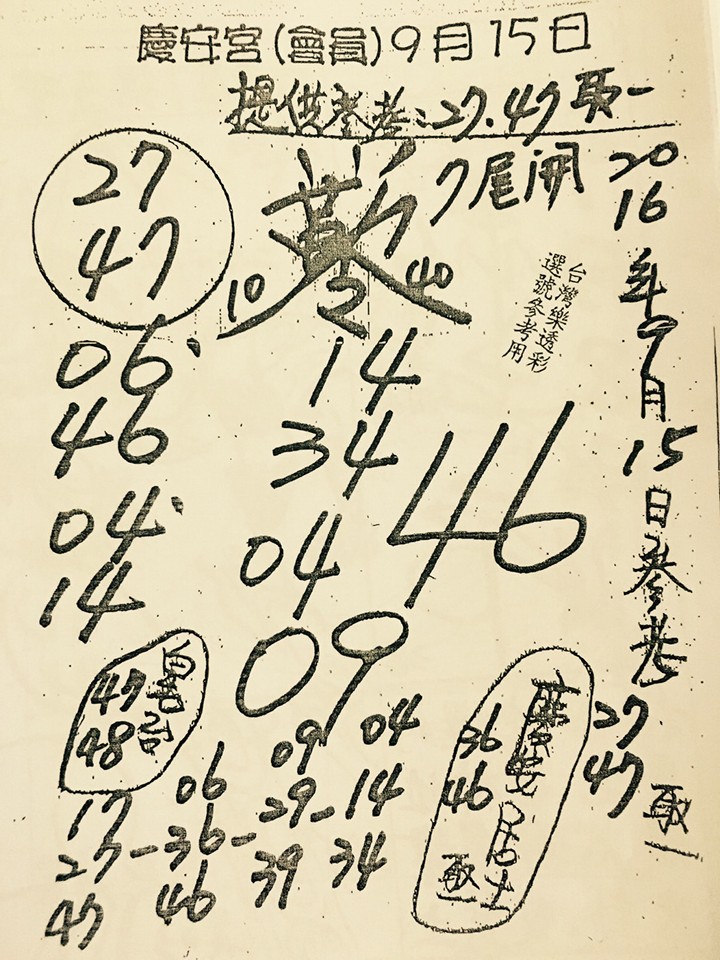 慶安宮(會員)9月15日
提供參考:27.47取一
27
47
7尾開
10
2
40
台灣樂透彩
選號參考用
2016年9月15日參考
27
47
取一
06
46
04
14
14
34
04
46
09
47
48
慶安居士
36
46
取一
09 04
06 29-14
17 39 34
27-36-
47 46